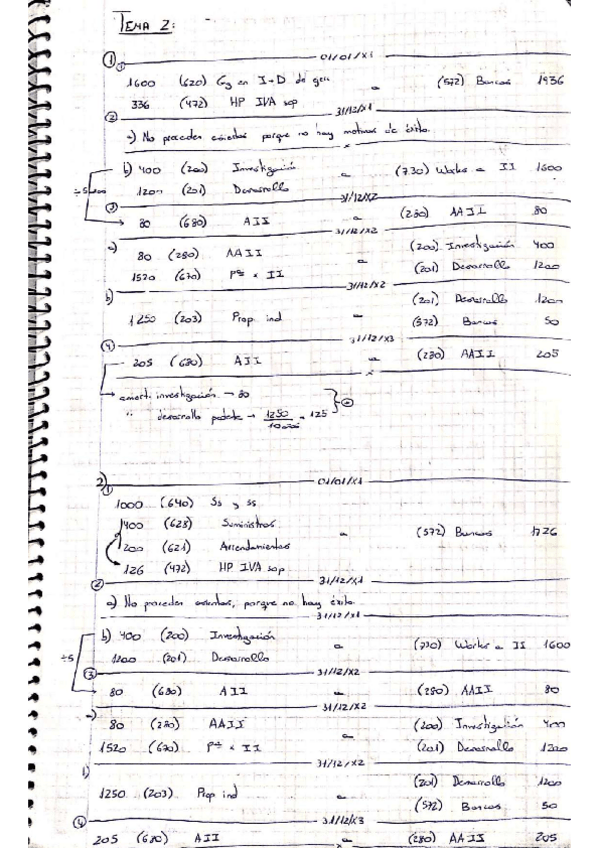 TEMA 2:
① ① 01/01/X1
1600 (620) Gº en I+D de gen a (572) Bancos 1936
336 (472) HP IVA sop
② 31/12/X1
a) No proceden asientos porque no hay motivos de éxito.
b) 400 (200) Investigación a (730) Works a II 1600
1200 (201) Desarrollo
÷5
③ 31/12/X2
80 (680) AII a (280) AAII 80
31/12/X2
a) 80 (280) AAII a (200) Investigación 400
1520 (670) Pª x II (201) Desarrollo 1200
31/12/X2
b) (201) Desarrollo 1200
1250 (203) Prop ind a (572) Bancos 50
④ 31/12/X3
205 (680) AII a (280) AAII 205
amort. investigación → 80
" desarrollo patente → 1250 / 10 años = 125
2) ① 01/01/X1
1000 (640) Ss y ss
400 (628) Suministros a (572) Bancos 1726
200 (621) Arrendamientos
126 (472) HP IVA sop
② 31/12/X1
a) No proceden asientos, porque no hay éxito
31/12/X1
b) 400 (200) Investigación a (730) Works a II 1600
1200 (201) Desarrollo
÷5
③ 31/12/X2
80 (680) AII a (280) AAII 80
31/12/X2
a) 80 (280) AAII a (200) Investigación 400
1520 (670) Pª x II (201) Desarrollo 1200
31/12/X2
b) (201) Desarrollo 1200
1250 (203) Prop ind a (572) Bancos 50
④ 31/12/X3
205 (680) AII a (280) AAII 205